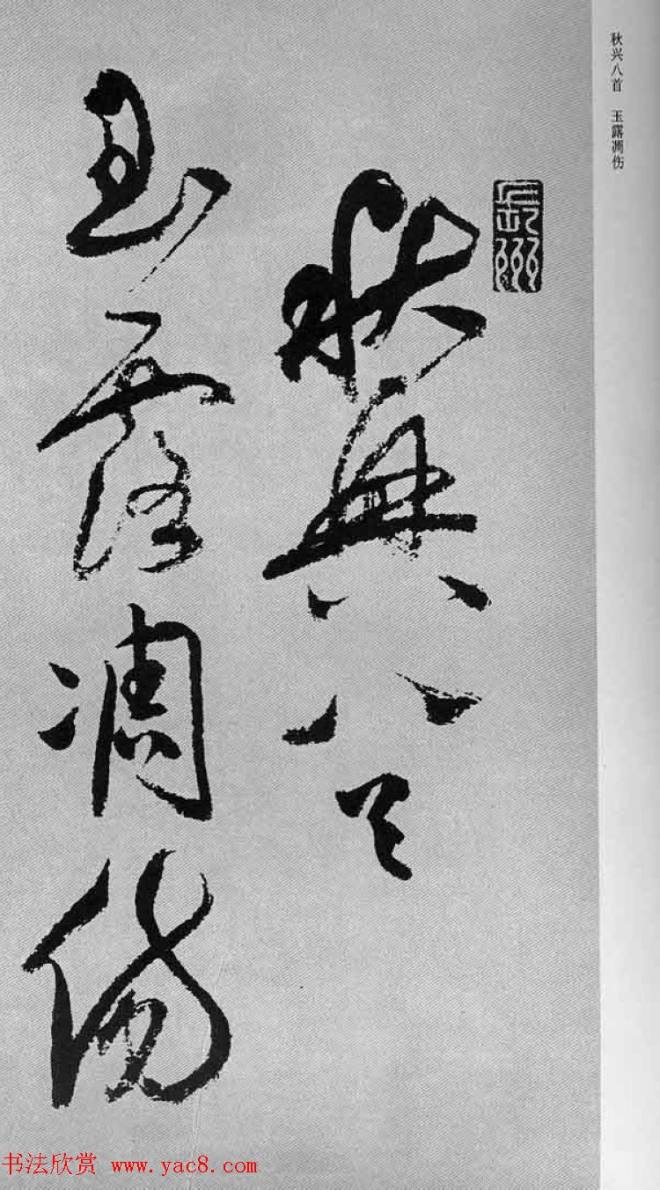 秋兴八首　玉露凋伤
長洲
秋興八首
玉露凋傷
书法欣赏 www.yac8.com